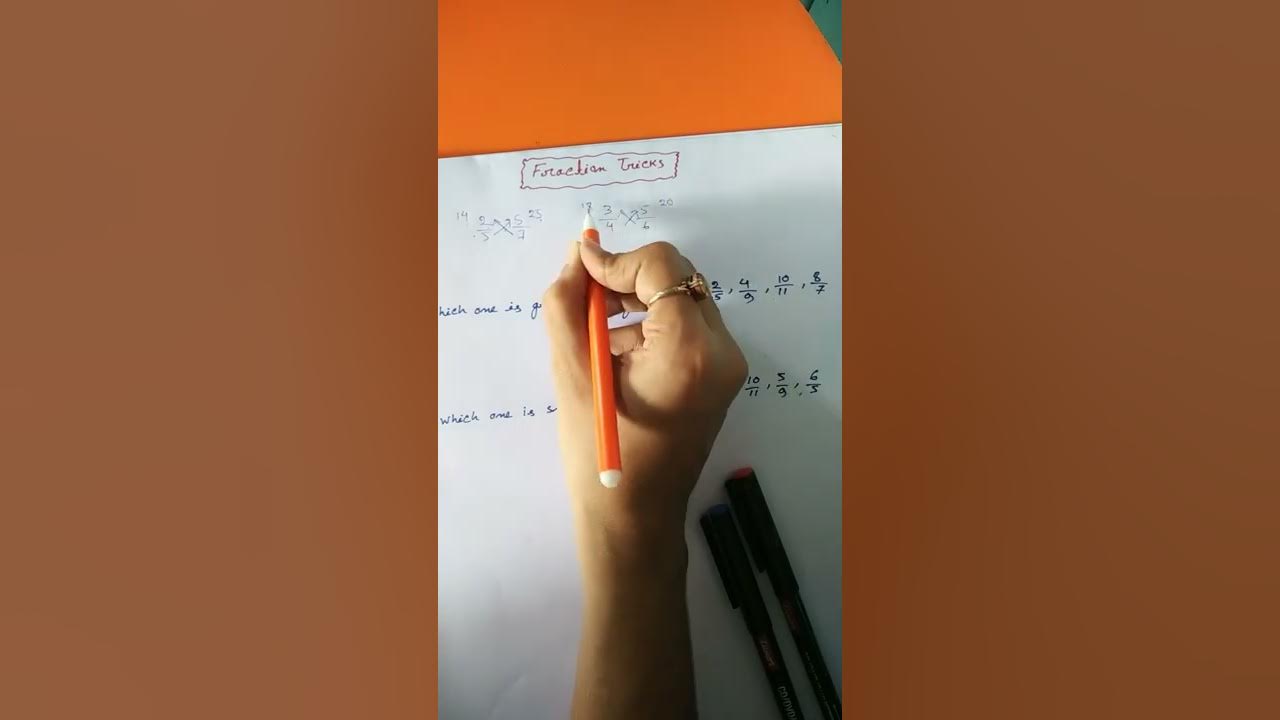 Foraction Tricks
14 2/5 5/7 25 18 3/4 5/6 20
hich one is g 2/5, 4/9, 10/11, 8/7
which one is s 10/11, 5/9, 6/5